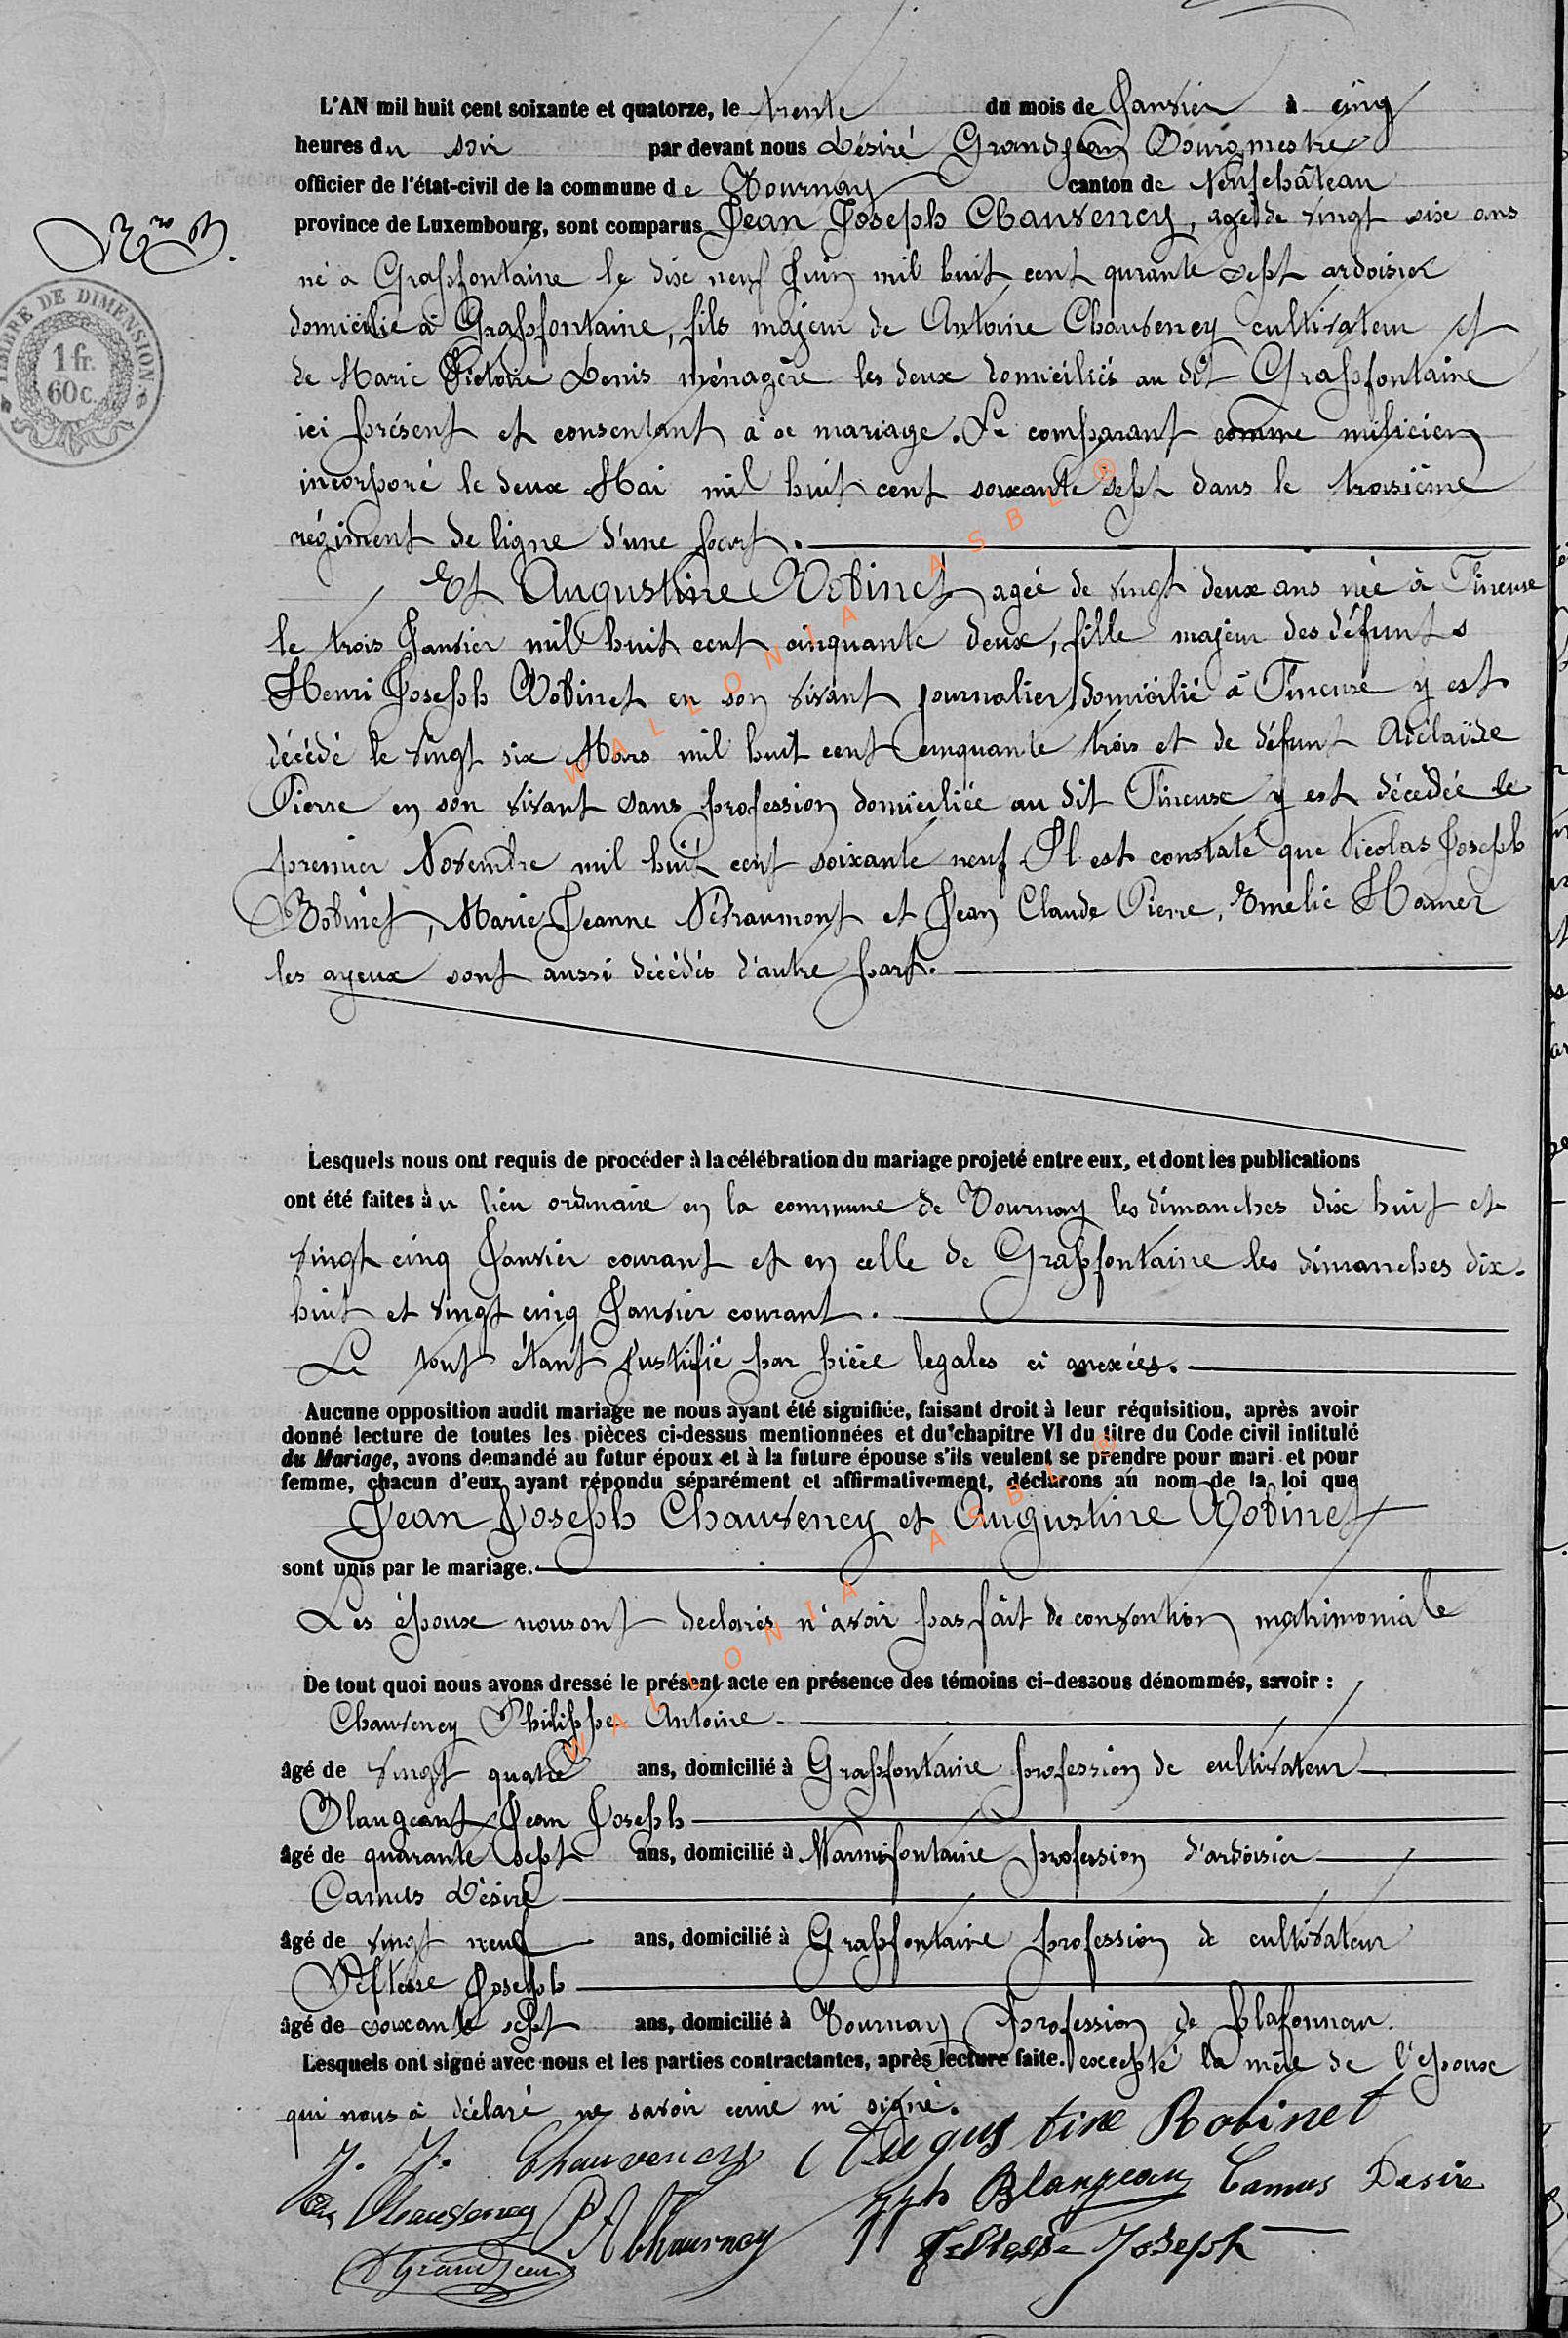 L'AN mil huit cent soixante et quatorze, le trente du mois de Janvier à cinq
heures du soir par devant nous Désiré Grandjean Bourgmestre
officier de l'état-civil de la commune de Tournay canton de Neufchâteau
province de Luxembourg, sont comparus Jean Joseph Chauvency, agé de vingt six ans
né a Grapfontaine le dix neuf Juin mil huit cent qurante sept ardoisier
domicilié à Grapfontaine, fils majeur de Antoine Chauvency cultivateur et
de Marie Victoire Denis ménagère les deux domiciliés au dit Grapfontaine
ici présent et consentant a ce mariage. Le comparant comme milicien
incorporé le deux Mai mil huit cent soixante sept dans le troisième
régiment de ligne d'une part.
Et Augustine Robinet agée de vingt deux ans née à Tineuse
le trois Janvier mil huit cent cinquante deux, fille majeur des défunts
Henri Joseph Robinet en son vivant journalier domicilié à Tineuse y est
décédé le vingt six Mars mil huit cent cinquante trois et de défunt Adélaïde
Pierre en son vivant sans profession domiciliée au dit Tineuse y est décédée le
premier Novembre mil huit cent soixante neuf Il est constaté que Nicolas Joseph
Robinet, Marie Jeanne Névraumont et Jean Claude Pierre, Emelie Hamer
les ayeux sont aussi décédés d'autre part.
TIMBRE DE DIMENSION
1 fr.
60 c.
Lesquels nous ont requis de procéder à la célébration du mariage projeté entre eux, et dont les publications
ont été faites au lieu ordinaire en la commune de Tournay les dimanches dix huit et
vingt cinq Janvier courant et en celle de Grapfontaine les dimanches dix-
huit et vingt cinq Janvier courant.
Le tout étant Justifié par pièce legales ci anexées.
Aucune opposition audit mariage ne nous ayant été signifiée, faisant droit à leur réquisition, après avoir
donné lecture de toutes les pièces ci-dessus mentionnées et du chapitre VI du titre du Code civil intitulé
du Mariage, avons demandé au futur époux et à la future épouse s'ils veulent se prendre pour mari et pour
femme, chacun d'eux ayant répondu séparément et affirmativement, déclarons au nom de la loi que
Jean Joseph Chauvency et Augustine Robinet
sont unis par le mariage.
Les époux nous ont declarés n'avoir pas fait de convention matrimoniale
De tout quoi nous avons dressé le présent acte en présence des témoins ci-dessous dénommés, savoir :
Chauvency Philippe Antoine
âgé de vingt quatre ans, domicilié à Grapfontaine profession de cultivateur
Blangeant Jean Joseph
âgé de quarante sept ans, domicilié à Warmifontaine profession d'ardoisier
Camus Désiré
âgé de vingt neuf ans, domicilié à Grapfontaine profession de cultivateur
Joseph
âgé de soixante sept ans, domicilié à Tournay Profession de plafonneur.
Lesquels ont signé avec nous et les parties contractantes, après lecture faite. excepté la mère de l'epoux
qui nous à déclaré ne savoir ni signé.
J. J. Chauvency Augustine Robinet
Chauvency Blangeau Camus Desire
D Grandjean Joseph
WALLONIA ASBL ®
WALLONIA ASBL ®